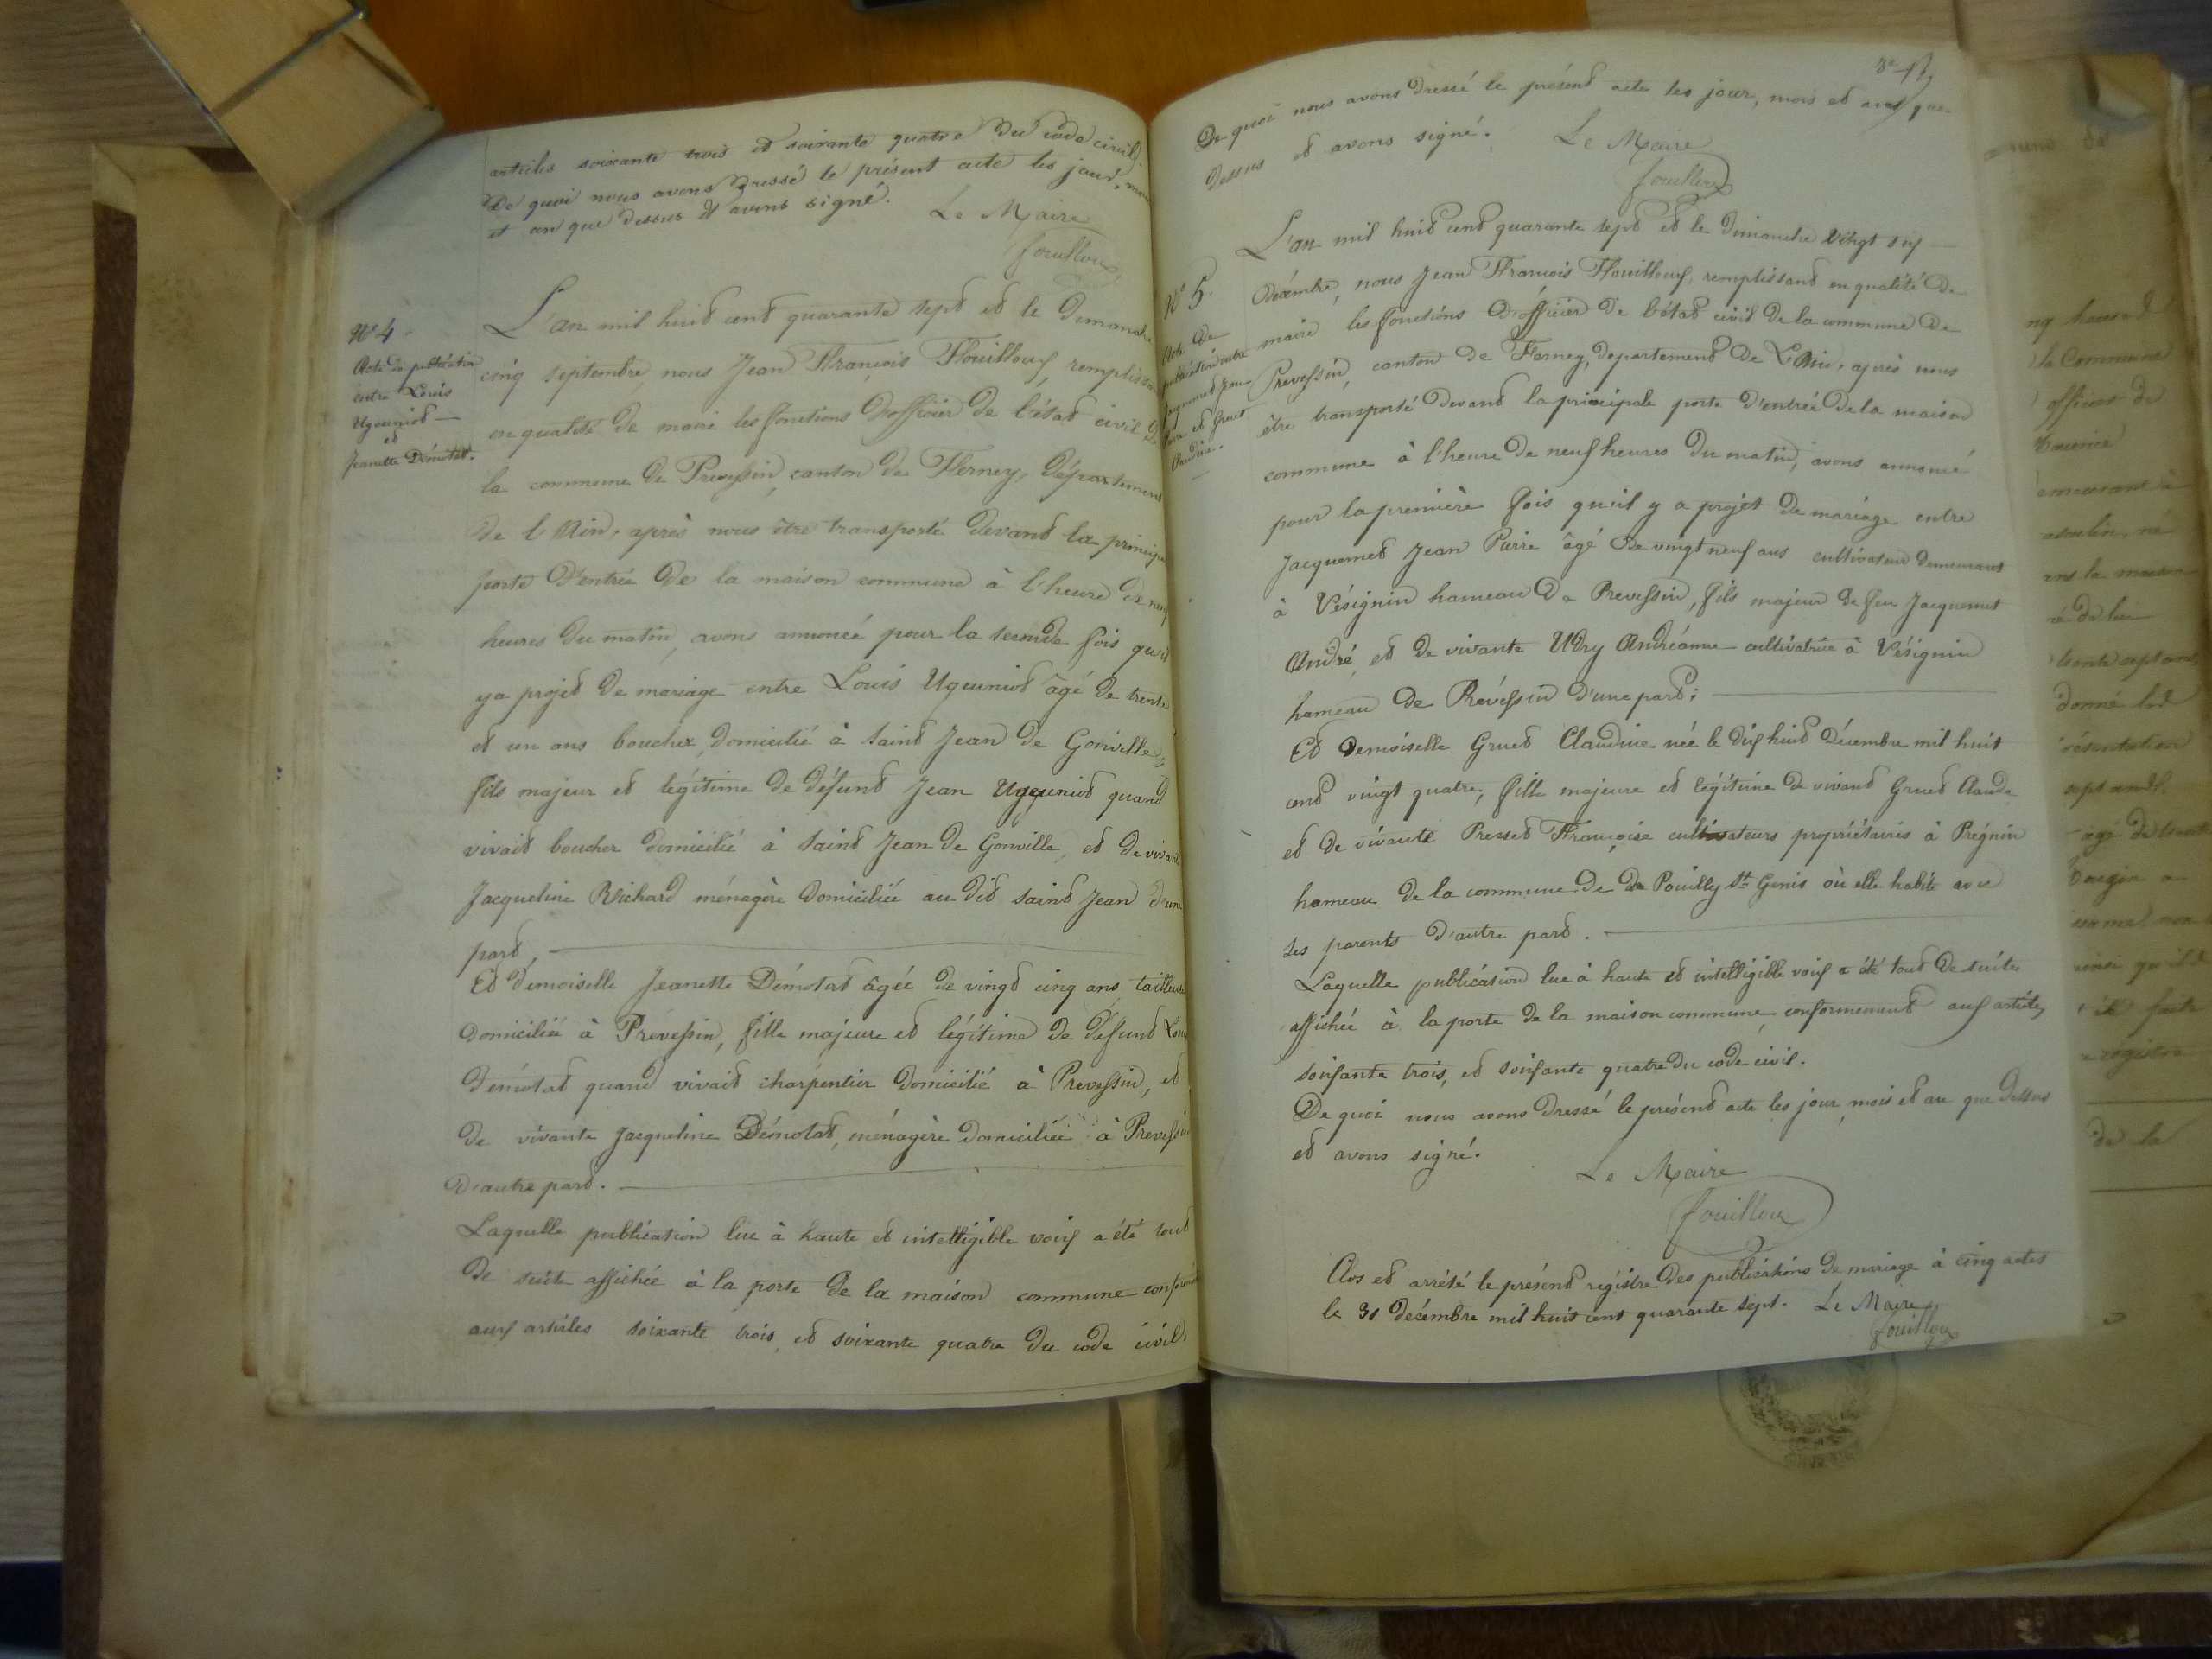 articles soixante trois et soixante quatre du code civil.
De quoi nous avons dressé le présent acte les jour, mois
et an que dessus et avons signé.
Le Maire
fouilloux
N° 4
Acte de publication
entre Louis
Ugeuniot
et
Jeanette Démotat.
L'an mil huit cent quarante sept et le Dimanche
cinq septembre nous Jean François Fouilloux, remplissant
en qualité de maire les fonctions d'officier de l'état civil de
la commune de Prevessin, canton de Ferney, département
de l'Ain, après nous être transporté devant la principale
porte d'entrée de la maison commune à l'heure de neuf
heures du matin, avons annoncé pour la seconde fois qu'il
y a projet de mariage entre Louis Ugeuniot âgé de trente
et un ans boucher, domicilié à saint Jean de Gonville,
fils majeur et légitime de défunt Jean Ugeuniot quand
vivait boucher domicilié à saint Jean de Gonville, et de vivante
Jacqueline Richard ménagère domiciliée au dit saint Jean d'une
part,
Et demoiselle Jeanette Démotat âgée de vingt cinq ans, tailleuse
domiciliée à Prévessin, fille majeure et légitime de défunt
démotat quand vivait charpentier domicilié à Prevessin, et
de vivante Jacqueline Démotat, ménagère domiciliée à Prevessin
d'autre part.
Laquelle publication lue à haute et intelligible voix a été tout
de suite affichée à la porte de la maison commune conformément
aux articles soixante trois et soixante quatre du code civil.
De quoi nous avons dressé le présent acte les jour, mois et an que
dessus et avons signé.
Le Maire
fouilloux
N° 5.
Acte de
publication entre
Jacquemet Jean
Pierre et Gruet
Claudine.
L'an mil huit cent quarante sept et le dimanche vingt six
Décembre, nous Jean François Fouilloux, remplissant en qualité de
maire les fonctions d'officier de l'état civil de la commune de
Prevessin, canton de Ferney, département de L'Ain, après nous
être transporté devant la principale porte d'entrée de la maison
commune à l'heure de neuf heures du matin, avons annoncé
pour la première fois qu'il y a projet de mariage entre
Jacquemet Jean Pierre âgé de vingt neuf ans cultivateur demeurant
à Vésignin hameau de Prevessin, fils majeur de feu Jacquemet
André, et de vivante Udry Andréanne cultivatrice à Vésignin
hameau de Prévessin d'une part;
Et demoiselle Gruet Claudine née le dix huit Décembre mil huit
cent vingt quatre, fille majeure et légitime de vivant Gruet Claude
et de vivante Presset Françoise cultivateurs propriétaires à Prégnin
hameau de la commune de de Pouilly St Genis où elle habite avec
ses parents d'autre part.
Laquelle publication lue à haute et intelligible voix a été tout de suite
affichée à la porte de la maison commune conformement aux articles
soixante trois, et soixante quatre du code civil.
De quoi nous avons dressé le présent acte les jour, mois et an que dessus
et avons signé.
Le Maire
fouilloux
Clos et arrêté le présent régistre des publications de mariage à cinq actes
le 31 décembre mil huit cent quarante sept. Le Maire
fouilloux
la Commune
officier de
ans la maison
donné les
a registre
de la